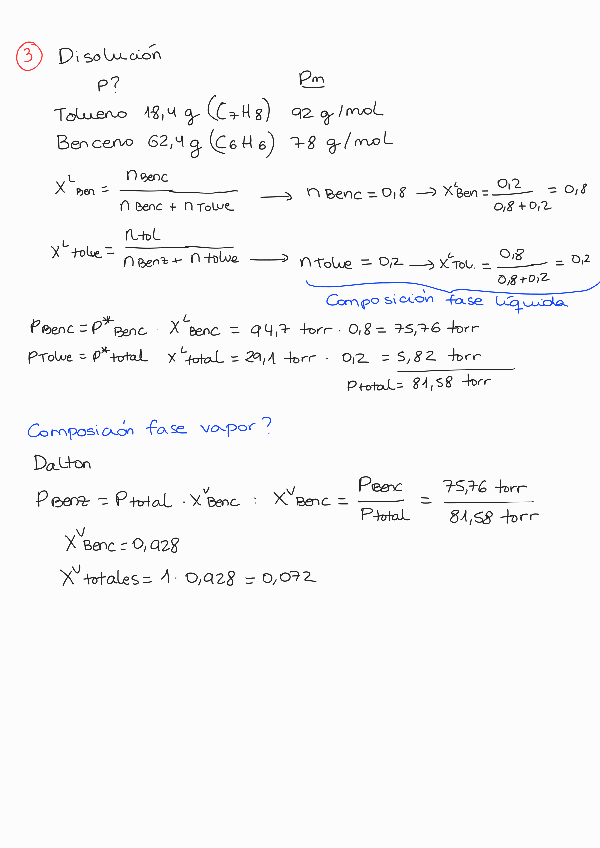 3 Disolución
P? Pm
Tolueno 18,4 g (C7H8) 92 g/mol
Benceno 62,4 g (C6H6) 78 g/mol
X^L Ben = n Benc / (n Benc + n Tolue) → n Benc = 0,8 → X^L Ben = 0,2 / (0,8 + 0,2) = 0,8
X^L tolue = n tol / (n Benz + n tolue) → n Tolue = 0,2 → X^L Tol. = 0,8 / (0,8 + 0,2) = 0,2
Composición fase líquida
P Benc = P* Benc · X^L Benc = 94,7 torr · 0,8 = 75,76 torr
P Tolue = P* total X^L total = 29,1 torr · 0,2 = 5,82 torr
P total = 81,58 torr
Composición fase vapor?
Dalton
P Benz = P total · X^V Benc : X^V Benc = P Benc / P total = 75,76 torr / 81,58 torr
X^V Benc = 0,928
X^V totales = 1 · 0,928 = 0,072